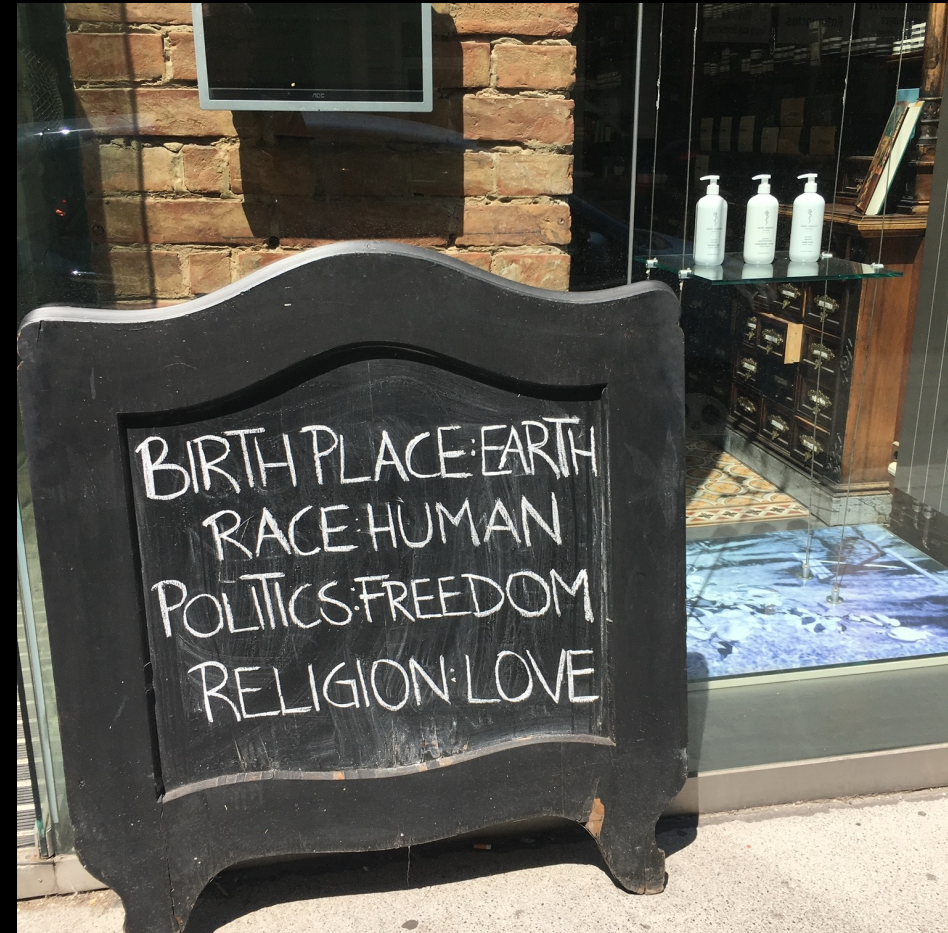 BIRTH PLACE:EARTH
RACE:HUMAN
POLITICS:FREEDOM
RELIGION:LOVE